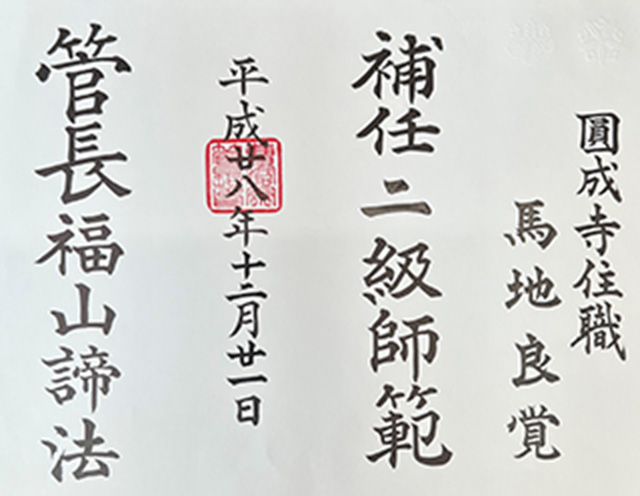 圓成寺住職
馬地良覚
補任二級師範
平成廿八年十二月廿一日
管長福山諦法